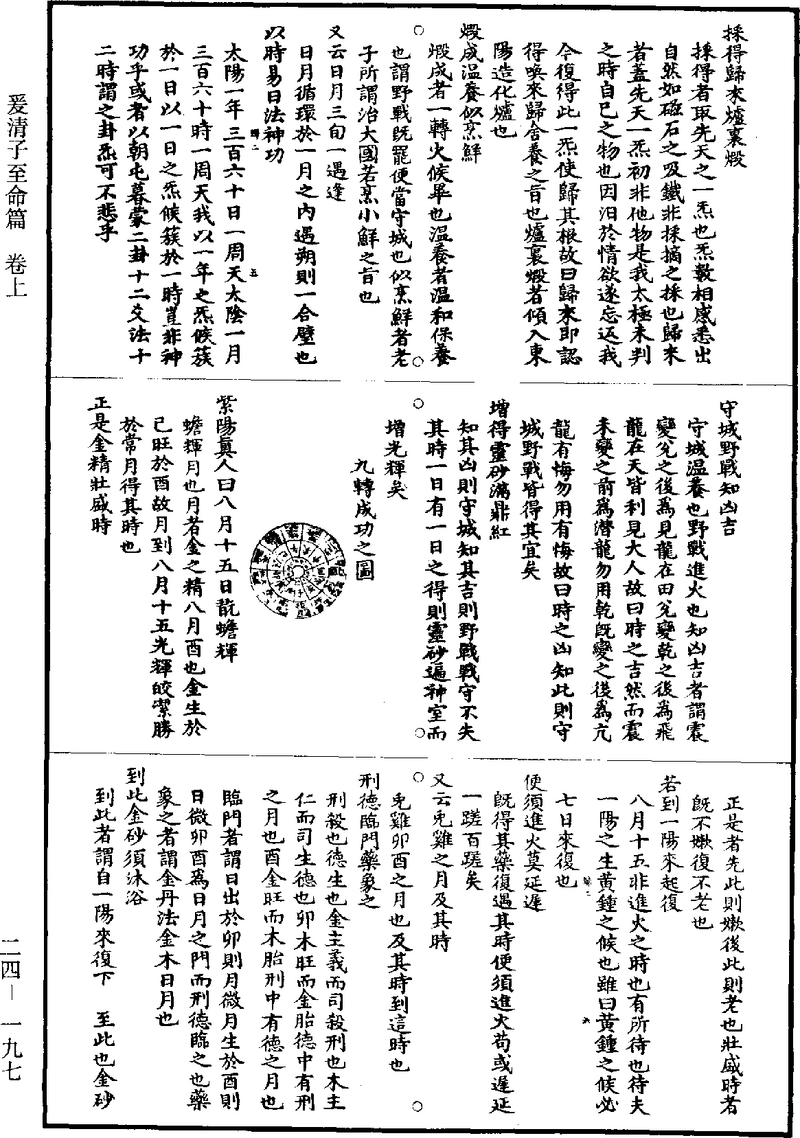 採得歸來爐裏煅
採得者取先天之一炁也炁數相感悉出
自然如磁石之吸鐵非採摘之採也歸來
者蓋先天一炁初非他物是我太極未判
之時自己之物也因汨於情欲遂忘返我
今復得此一炁使歸其根故曰歸來即認
得喚來歸舍養之旨也爐裏煅者傾入東
陽造化爐也
煅成溫養似烹鮮
煅成者一轉火候畢也溫養者溫和保養
也謂野戰既罷便當守城也似烹鮮者老
子所謂治大國若烹小鮮之旨也
又云日月三旬一遇逢
日月循環於一月之內遇朔則一合璧也
以時易日法神功
太陽一年三百六十日一周天太陰一月
三百六十時一周天我以一年之炁候簇
於一日以一日之炁候簇於一時豈非神
功乎或者以朝屯暮蒙二卦十二爻法十
二時謂之卦炁可不悲乎
守城野戰知凶吉
守城溫養也野戰進火也知凶吉者謂震
變兌之後為見龍在田兌變乾之後為飛
龍在天皆利見大人故曰時之吉然而震
未變之前為潛龍勿用乾既變之後為亢
龍有悔勿用有悔故曰時之凶知此則守
城野戰皆得其宜矣
增得靈砂滿鼎紅
知其凶則守城知其吉則野戰戰守不失
其時一日有一日之得則靈砂遍神室而
增光輝矣
九轉成功之圖
紫陽真人曰八月十五日翫蟾輝
蟾輝月也月者金之精八月酉也金生於
己旺於酉故月到八月十五光輝皎潔勝
於常月得其時也
正是金精壯盛時
正是者先此則嫰後此則老也壯盛時者
既不嫰復不老也
若到一陽來起復
八月十五非進火之時也有所待也待夫
一陽之生黃鍾之候也雖曰黃鍾之候必
七日來復也
便須進火莫延遲
既得其藥復遇其時便須進火苟或遲延
一蹉百蹉矣
又云兎雞之月及其時
兎雞卯酉之月也及其時到這時也
刑德臨門藥象之
刑殺也德生也金主義而司殺刑也木主
仁而司生德也卯木旺而金胎德中有刑
之月也酉金旺而木胎刑中有德之月也
臨門者謂日出於卯則月微月生於酉則
日微卯酉為日月之門而刑德臨之也藥
象之者謂金丹法金木日月也
到此金砂須沐浴
到此者謂自一陽來復下　至此也金砂
爰清子至命篇　卷上
二四—一九七